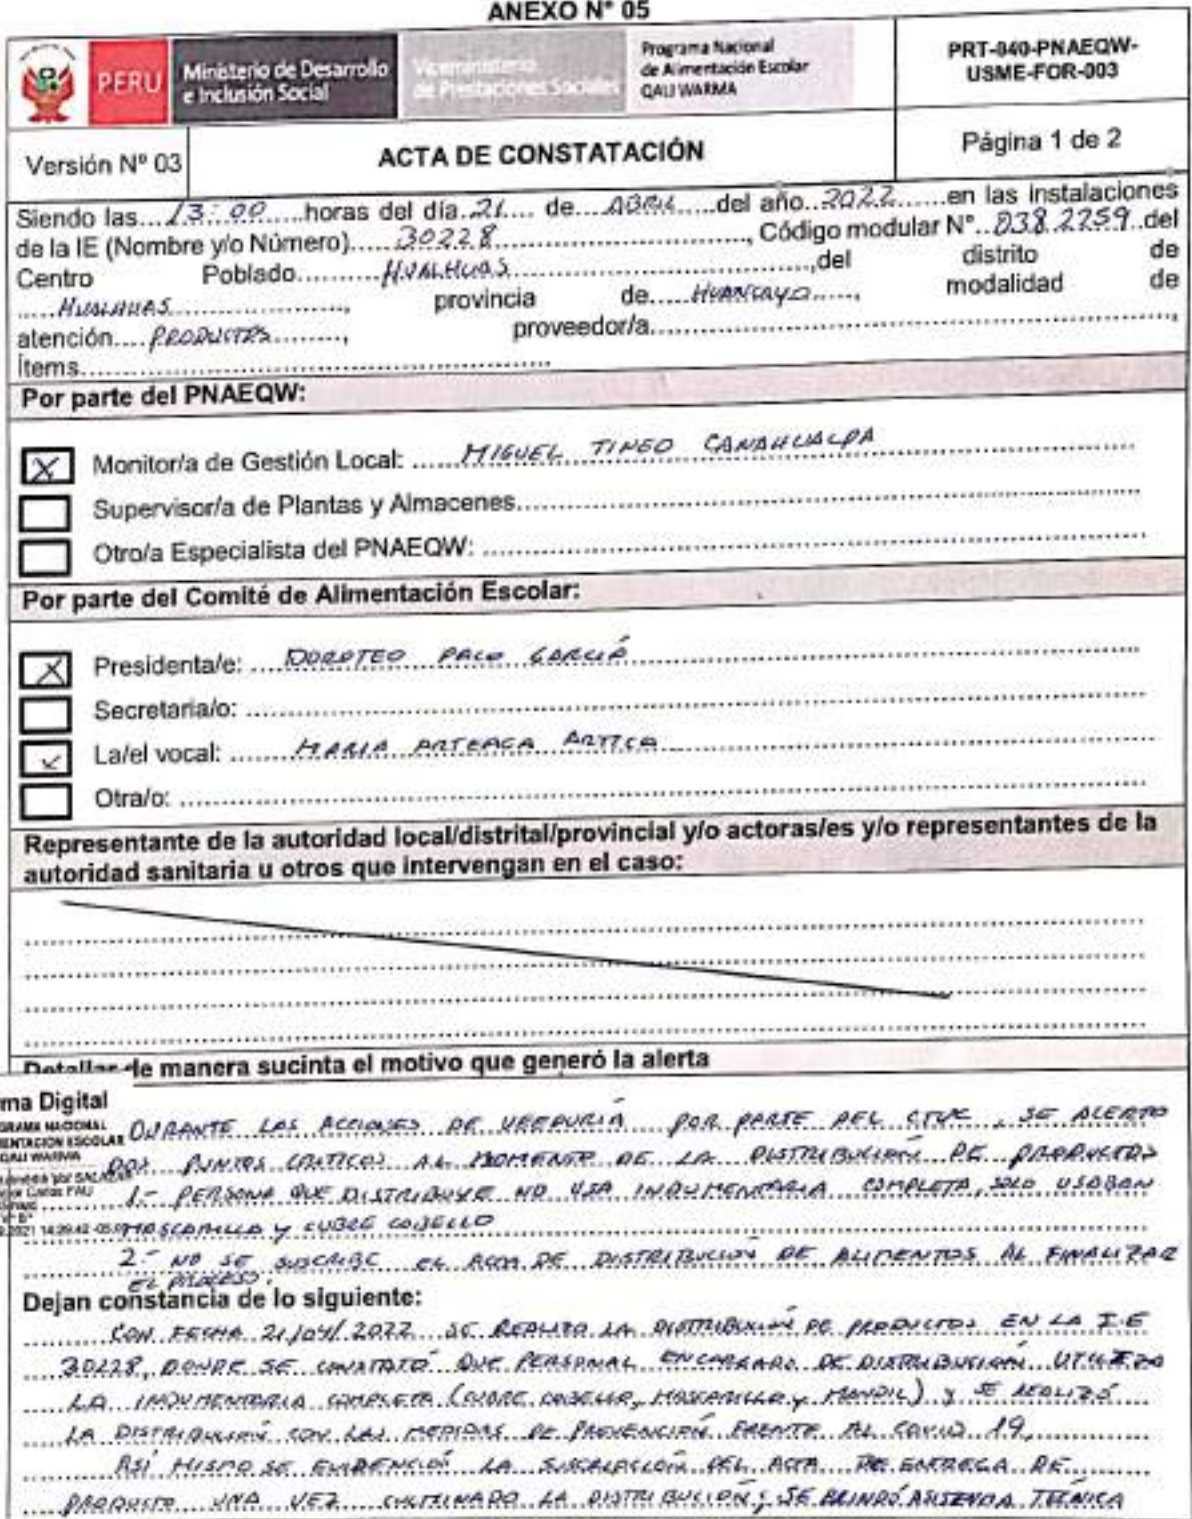 ANEXO N° 05
PERU
Ministerio de Desarrollo
e Inclusión Social
Viceministerio
de Prestaciones Sociales
Programa Nacional
de Alimentación Escolar
QALI WARMA
PRT-040-PNAEQW-
USME-FOR-003
Versión Nº 03
ACTA DE CONSTATACIÓN
Página 1 de 2
Siendo las...13:00....horas del día.21.... de....ABRIL....del año..2022......en las instalaciones
de la IE (Nombre y/o Número).....30228..........................., Código modular N°..0382259..del
Centro Poblado..........HUALHUAS...........................,del distrito de
.....HUALHUAS..................., provincia de.....HUANCAYO....., modalidad de
atención....PRODUCTOS........., proveedor/a..................................................,
Ítems..................................................
Por parte del PNAEQW:
X Monitor/a de Gestión Local: ......MIGUEL TINEO CANAHUALPA
Supervisor/a de Plantas y Almacenes..................................................
Otro/a Especialista del PNAEQW: ..................................................
Por parte del Comité de Alimentación Escolar:
X Presidenta/e: ....DOROTEO PALO GARCIA
Secretaria/o: ..................................................
✓ La/el vocal: .........MARIA ARTEAGA ARTICA
Otra/o: ..................................................
Representante de la autoridad local/distrital/provincial y/o actoras/es y/o representantes de la
autoridad sanitaria u otros que intervengan en el caso:
Detallar de manera sucinta el motivo que generó la alerta
ma Digital
GRAMA NACIONAL
MENTACION ESCOLAR
QALI WARMA
por SALAZAR
Carlos FAU
2021 14:39:42 -05:00
DURANTE LAS ACCIONES DE VEEDURIA POR PARTE DEL CTVC, SE ALERTO
DOS PUNTOS CRITICOS AL MOMENTO DE LA DISTRIBUCION DE PRODUCTOS
1.- PERSONA QUE DISTRIBUYE NO USA INDUMENTARIA COMPLETA, SOLO USABAN
MASCARILLA y CUBRE CABELLO
2.- NO SE SUSCRIBE EL ACTA DE DISTRIBUCIÓN DE ALIMENTOS AL FINALIZAR
EL PROCESO.
Dejan constancia de lo siguiente:
CON FECHA 21/04/2022 SE REALIZO LA DISTRIBUCIÓN DE PRODUCTOS EN LA I.E
30228, DONDE SE CONSTATÓ QUE PERSONAL ENCARGADO DE DISTRIBUCIÓN UTILIZA
LA INDUMENTARIA COMPLETA (CUBRE CABELLO, MASCARILLA y MANDIL) y SE REALIZÓ
LA DISTRIBUCIÓN CON LAS MEDIDAS DE PREVENCIÓN FRENTE AL COVID 19.
ASÍ MISMO SE EVIDENCIÓ LA SUSCRIPCIÓN DEL ACTA DE ENTREGA DE
PRODUCTO UNA VEZ CULMINADO LA DISTRIBUCIÓN; SE BRINDÓ ASISTENCIA TÉCNICA